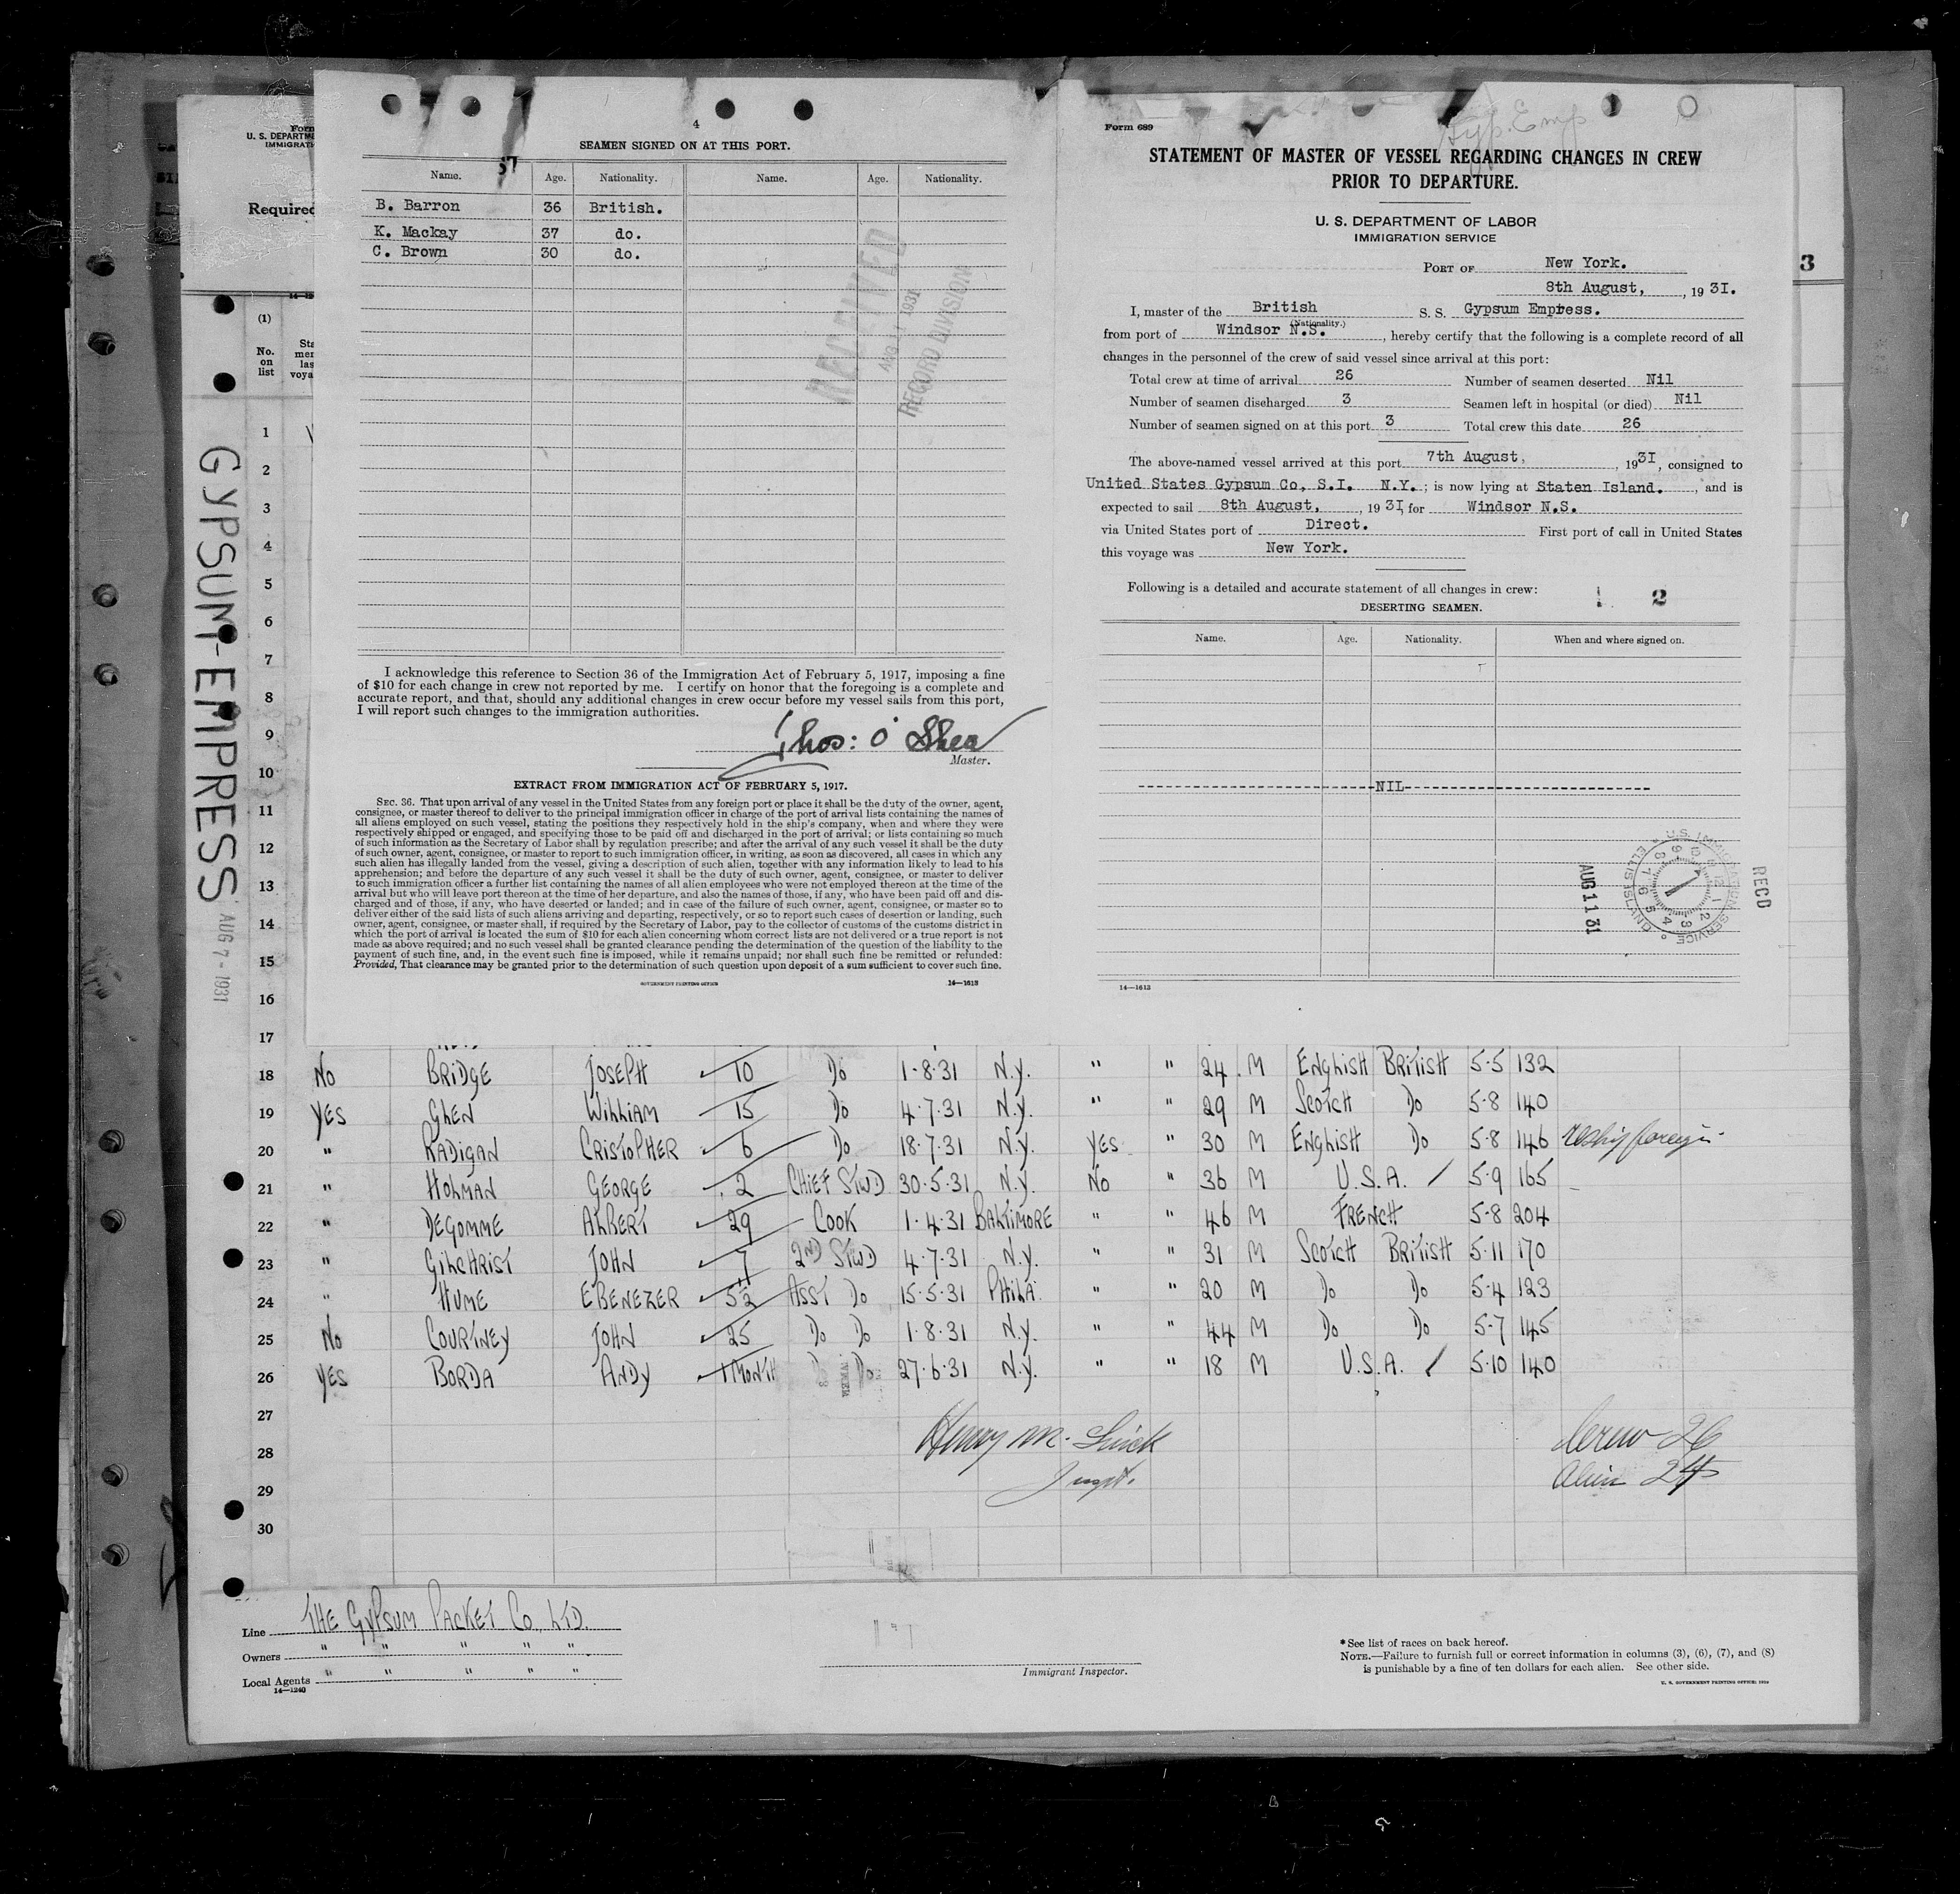 4
SEAMEN SIGNED ON AT THIS PORT.
57
Name. Age. Nationality. Name. Age. Nationality.
B. Barron 36 British.
K. Mackay 37 do.
C. Brown 30 do.
RECEIVED
AUG 1931
RECORD DIVISION
I acknowledge this reference to Section 36 of the Immigration Act of February 5, 1917, imposing a fine
of $10 for each change in crew not reported by me. I certify on honor that the foregoing is a complete and
accurate report, and that, should any additional changes in crew occur before my vessel sails from this port,
I will report such changes to the immigration authorities.
Thos: O'Shea
Master.
EXTRACT FROM IMMIGRATION ACT OF FEBRUARY 5, 1917.
SEC. 36. That upon arrival of any vessel in the United States from any foreign port or place it shall be the duty of the owner, agent,
consignee, or master thereof to deliver to the principal immigration officer in charge of the port of arrival lists containing the names of
all aliens employed on such vessel, stating the positions they respectively hold in the ship's company, when and where they were
respectively shipped or engaged, and specifying those to be paid off and discharged in the port of arrival; or lists containing so much
of such information as the Secretary of Labor shall by regulation prescribe; and after the arrival of any such vessel it shall be the duty
of such owner, agent, consignee, or master to report to such immigration officer, in writing, as soon as discovered, all cases in which any
such alien has illegally landed from the vessel, giving a description of such alien, together with any information likely to lead to his
apprehension; and before the departure of any such vessel it shall be the duty of such owner, agent, consignee, or master to deliver
to such immigration officer a further list containing the names of all alien employees who were not employed thereon at the time of the
arrival but who will leave port thereon at the time of her departure, and also the names of those, if any, who have been paid off and dis-
charged and of those, if any, who have deserted or landed; and in case of the failure of such owner, agent, consignee, or master so to
deliver either of the said lists of such aliens arriving and departing, respectively, or so to report such cases of desertion or landing, such
owner, agent, consignee, or master shall, if required by the Secretary of Labor, pay to the collector of customs of the customs district in
which the port of arrival is located the sum of $10 for each alien concerning whom correct lists are not delivered or a true report is not
made as above required; and no such vessel shall be granted clearance pending the determination of the question of the liability to the
payment of such fine, and, in the event such fine is imposed, while it remains unpaid; nor shall such fine be remitted or refunded:
Provided, That clearance may be granted prior to the determination of such question upon deposit of a sum sufficient to cover such fine.
GOVERNMENT PRINTING OFFICE 14—1613
Form 689
Gyp. Emp
STATEMENT OF MASTER OF VESSEL REGARDING CHANGES IN CREW
PRIOR TO DEPARTURE.
U. S. DEPARTMENT OF LABOR
IMMIGRATION SERVICE
PORT OF New York.
8th August, , 19 31.
I, master of the British S. S. Gypsum Empress.
(Nationality.)
from port of Windsor N.S. , hereby certify that the following is a complete record of all
changes in the personnel of the crew of said vessel since arrival at this port:
Total crew at time of arrival 26 Number of seamen deserted Nil
Number of seamen discharged 3 Seamen left in hospital (or died) Nil
Number of seamen signed on at this port 3 Total crew this date 26
The above-named vessel arrived at this port 7th August, , 19 31, consigned to
United States Gypsum Co, S.I. N.Y. ; is now lying at Staten Island. , and is
expected to sail 8th August, , 19 31, for Windsor N.S.
via United States port of Direct. First port of call in United States
this voyage was New York.
Following is a detailed and accurate statement of all changes in crew:
2
DESERTING SEAMEN.
Name. Age. Nationality. When and where signed on.
NIL
RECD
U.S. IMMIGRATION SERVICE ELLIS ISLAND
AUG 11 31
14—1613
Form
U. S. DEPARTM
IMMIGRAT
Required
3
(1)
No. on list
1
2
3
4
5
6
7
8
9
10
11
12
13
14
15
16
17
GYPSUM-EMPRESS
AUG 7 - 1931
18 No BRIDGE JOSEPH 10 Do 1-8-31 N.Y. " " 24 M ENGLISH BRITISH 5-5 132
19 YES GLEN WILLIAM 15 Do 4-7-31 N.Y. " " 29 M SCOTCH Do 5-8 140
20 " RADIGAN CRISTOPHER 6 Do 18-7-31 N.Y. YES " 30 M ENGLISH Do 5-8 146 reship foreign
21 " HOLMAN GEORGE 2 CHIEF STWD 30-5-31 N.Y. No " 36 M U.S.A. 5-9 165
22 " DEGOMME ALBERT 29 COOK 1-4-31 BALTIMORE " " 46 M FRENCH 5-8 204
23 " GILCHRIST JOHN 7 2ND STWD 4-7-31 N.Y. " " 31 M SCOTCH BRITISH 5-11 170
24 " HUME EBENEZER 5½ ASST Do 15-5-31 PHILA. " " 20 M Do Do 5-4 123
25 No COURTNEY JOHN 25 Do Do 1-8-31 N.Y. " " 44 M Do Do 5-7 145
26 YES BORDA ANDY 1 MONTH Do Do 27-6-31 N.Y. " " 18 M U.S.A. 5-10 140
27
28
29
30
Henry M.
Inspt.
Crew 26
Alien 24
Line THE GYPSUM PACKET Co. LTD.
Owners " " " " "
Local Agents " " " " "
14—1240
Immigrant Inspector.
*See list of races on back hereof.
NOTE.—Failure to furnish full or correct information in columns (3), (6), (7), and (8)
is punishable by a fine of ten dollars for each alien. See other side.
U. S. GOVERNMENT PRINTING OFFICE: 1929